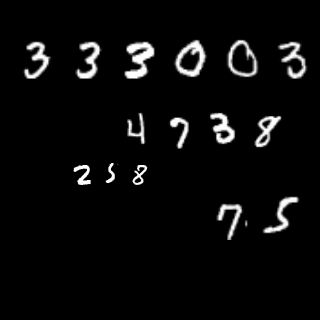 333003
4738
258
7.5